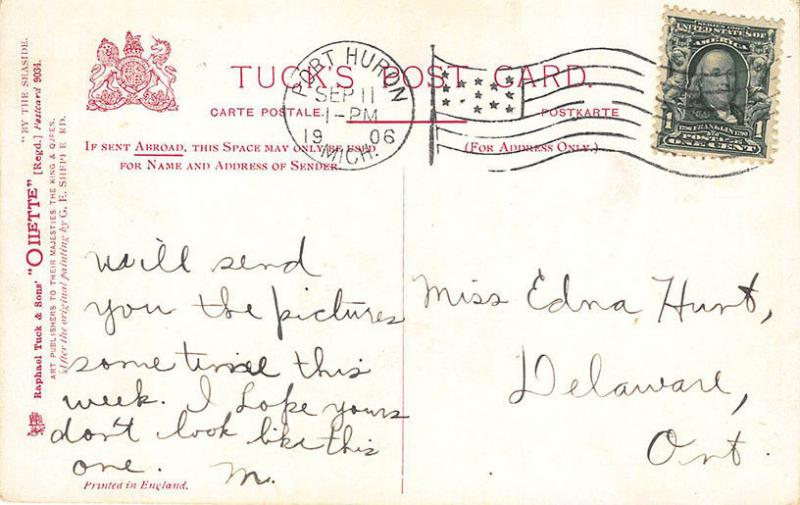 TUCK'S POST CARD.
CARTE POSTALE.
POSTKARTE
IF SENT ABROAD, THIS SPACE MAY ONLY BE USED
FOR NAME AND ADDRESS OF SENDER.
(FOR ADDRESS ONLY.)
PORT HURON
SEP 11
1-PM
19 06
MICH.
SERIES 1902
UNITED STATES OF
AMERICA
1 1790 FRANKLIN 1790 1
POSTAGE
ONE CENT
"BY THE SEASIDE.
Raphael Tuck & Sons' "OILETTE" [Regd.] Postcard 9034.
ART PUBLISHERS TO THEIR MAJESTIES THE KING & QUEEN.
After the original painting by G. E. SHEPHERD.
Will send
you the pictures
some time this
week. I hope yours
don't look like this
one. M.
Miss Edna Hunt,
Delaware,
Ont.
Printed in England.